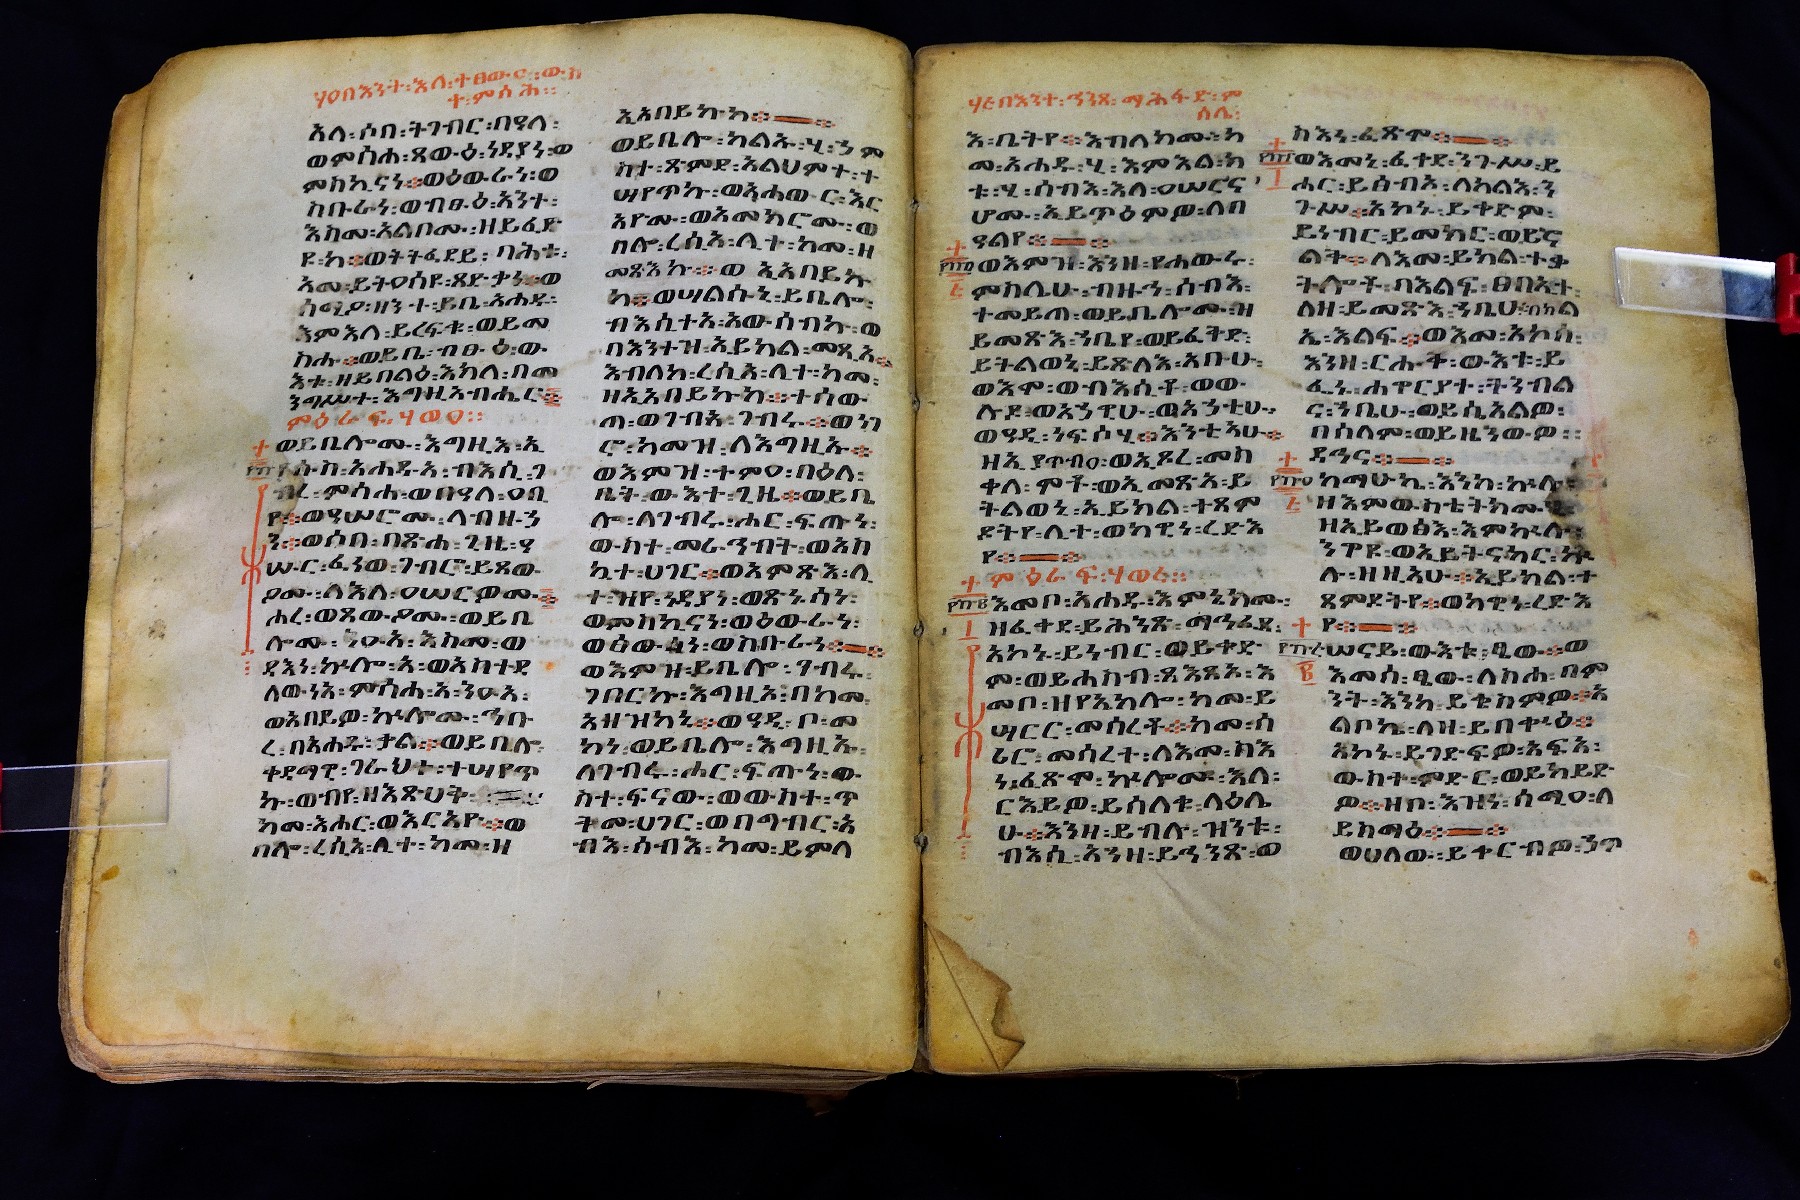 ሃ፬በእንተ፡እለ፡ተፀውዑ፡ውስ
ተ፡ምሳሕ፡፡
አላ፡ሶበ፡ትገብር፡በዓለ፡
ወምሳሐ፡ጸውዕ፡ነዳያነ፡ወ
ምስኪናነ፡፡ወዕውራነ፡ወ
ሐንካሳነ፡ወብፁዕ፡አንተ፡
እስመ፡አልቦሙ፡ዘይፈድ
ዩከ፡፡ወትትፈደይ፡ባሕቱ፡
አመ፡ይትነሥኡ፡ጻድቃን፡፡ወ
ሰሚዖ፡ዘንተ፡ይቤ፡አሐዱ፡
እምእለ፡ይረፍቁ፡ወይመ
ስሑ፡፡ወይቤ፡ብፁዕ፡ው
እቱ፡ዘይበልዕ፡እክለ፡በመ
ንግሥተ፡እግዚአብሔር፡፡
ምዕራፍ፡
ወይቤሎሙ፡እግዚእ፡ኢ
የሱስ፡አሐዱ፡ብእሲ፡ገ
ብረ፡ምሳሐ፡ወበዓለ፡ዐቢ
የ፡፡ወዓሠሮሙ፡ለብዙኃ
ን፡፡ወሶበ፡በጽሐ፡ጊዜ፡ዓ
ሡር፡ፈነወ፡ገብሮ፡ይጸው
ዖሙ፡ለእለ፡ዐሠርዎሙ፡፡
ሖረ፡ወጸውዖሙ፡ወይቤ
ሎሙ፡ንዑ፡እስመ፡ወ
ዳእነ፡ኵሎ፡አ፡ወአስተዳ
ለውነ፡ምሳሐ፡ንዑ፡
ወአበይዎ፡ኵሎሙ፡ኅቡ
ረ፡በአሐዱ፡ቃል፡፡ወይቤሎ
ቀዳማዊ፡ገራህተ፡ተሣየጥ
ኩ፡ወብየ፡ዘእጽህቅ፡
ከመ፡እሖር፡ወእርአዮ፡፡ወ
በሎ፡ረሲአ፡ሊተ፡ከመ፡ዘ
ኢአበይኩከ፡፡
ወይቤሎ፡ካልኡ፡ሂ፡ኃም
ስተ፡ጽምደ፡አልህምተ፡ተ
ሣየጥኩ፡ወአሐውር፡እር
አዮሙ፡ወአመክሮሙ፡ወ
በሎ፡ረሲአ፡ሊተ፡ከመ፡ዘ
መጻእኩ፡፡ወ ኢአበይኩ
ከ፡፡ወሣልሱኒ፡ይቤሎ፡
ብእሲተ፡አውሰብኩ፡ወ
በእንተዝ፡ኢይክል፡መጺአ፡፡
እብለከ፡ረሲአ፡ሊተ፡ከመ፡
ዘኢአበይኩከ፡፡ተሰው
ጠ፡ወገብአ፡ገብሩ፡፡ወነገ
ሮ፡ከመዝ፡ለእግዚኡ፡፡
ወእምዝ፡ተምዐ፡በዕለ፡
ቤት፡ውእተ፡ጊዜ፡፡ወይቤ
ሎ፡ለገብሩ፡ሑር፡ፍጡነ፡
ውስተ፡መራኅብት፡ወአስ
ኳተ፡ሀገር፡፡ወአምጽእ፡ሊ
ተ፡ዝየ፡ነዳያነ፡ወጽኑሳነ፡
ወምስኪናነ፡ወዕውራነ፡
ወፅውሳነ፡ወስቡራነ፡፡
ወእምዝ፡ይቤሎ፡ገብሩ፡
ገበርኩ፡እግዚኦ፡በከመ፡
አዘዝከኒ፡፡ወዓዲ፡ቦ፡መ
ካነ፡ወይቤሎ፡እግዚኡ፡
ለገብሩ፡ሑር፡ፍጡነ፡ው
ስተ፡ፍናው፡ወውስተ፡ጥ
ቅመ፡ሀገር፡ወበግብር፡አ
ብእ፡ሰብአ፡ከመ፡ይምላ
ሃ፭በእንተ፡ኅንጸ፡ማሕፈድ፡ም
ሳሌ፡
እ፡ቤትየ፡፡እብለክሙ፡ከ
መ፡አሐዱ፡ሂ፡እምእልክ
ቱ፡ሂ፡ሰብእ፡እለ፡ዐሠርና
ሆሙ፡ኢይጥዕምዎ፡ለበ
ዓልየ፡፡
ወእምዝ፡እንዘ፡የሐውሩ፡
ምስሌሁ፡ብዙኅ፡ሰብእ፡
ተመይጠ፡ወይቤሎሙ፡ዘ
ይመጽእ፡ኀቤየ፡ወይፈቅድ፡
ይትልወኒ፡ይጽላእ፡አባሁ፡
ወእሞ፡ወብእሲቶ፡ወው
ሉዶ፡ወአኀዊሁ፡ወአኀቲሁ፡
ወዓዲ፡ነፍሶሂ፡፡እንተ፡ባሁ፡፡
ዘኢያጥብዐ፡ወኢጾረ፡መስ
ቀለ፡ሞቱ፡ወኢመጽአ፡ይ
ትልወኒ፡ኢይክል፡ተጸም
ዶትየ፡ሊተ፡ወከዊነ፡ረድእ
የ፡፡
ምዕራፍ፡
እመቦ፡አሐዱ፡እምኔክሙ፡
ዘፈቀደ፡ይሕንጽ፡ማኅፈደ፡
አኮኑ፡ይነብር፡ወይቀድ
ም፡ወይሐስብ፡ጸአጸአ፡እ
መቦ፡ዘየአክሎ፡ከመ፡ይ
ሣርር፡መሰረቶ፡፡ከመ፡ሰ
ሪሮ፡መሰረተ፡ለእመ፡ስእ
ነ፡ፈጽሞ፡ኵሎሙ፡እለ፡
ርእይዎ፡ይሳለቁ፡ላዕሌ
ሁ፡፡እንዘ፡ይብሉ፡ዝንቱ፡
ብእሲ፡አንዘ፡ይኀንጽ፡ወ
ስእነ፡ፈጽሞ፡፡
ወእመኒ፡ፈቀደ፡ንጉሥ፡ይ
ሑር፡ይፅብእ፡ለካልእ፡ን
ጉሥ፡አኮኑ፡ይቀድም፡
ይነብር፡ይመክር፡ወይኄ
ልቅ፡፡ለእመ፡ይክል፡ተቃ
ትሎቶ፡በእልፍ፡ፀባኢተ፡
ለዘ፡ይመጽእ፡ኀቤሁ፡በክል
ኤ፡እልፍ፡፡ወእመ፡አኮሰ፡
እንዘ፡ርሑቅ፡ውእቱ፡ይ
ፌኑ፡ሐዋርያተ፡ትንብል
ና፡ኀቤሁ፡ወይሲአልዎ፡
በሰላም፡ወይዜንውዎ፡፡
ዳኅና፡፡
ከማሁኬ፡እንከ፡ኵሉ፡
ዘእምውስቴትክሙ፡
ዘኢይወፅእ፡እምኵሉ፡
ንዋዩ፡ወኢይትናከር፡ኵ
ሎ፡ዘዚአሁ፡፡ኢይክል፡ተ
ጸምዶትየ፡፡ወከዊነ፡ረድእ
የ፡፡
ሠናይ፡ውእቱ፡ፄው፡፡ወ
እመሰ፡ፄው፡ለስሐ፡በም
ንት፡እንከ፡ይቄስምዎ፡፡አ
ልቦኬ፡ለዘ፡ይበቍዕ፡፡
አኮኑ፡ይገድፍዎ፡አፍአ፡
ውስተ፡ምድር፡ወይከይድ
ዎ፡፡ዘቦ፡እዝነ፡ሰሚዐ፡ለ
ይስማዕ፡፡
ወሀለው፡ይቀርብዎ፡ኅጥ